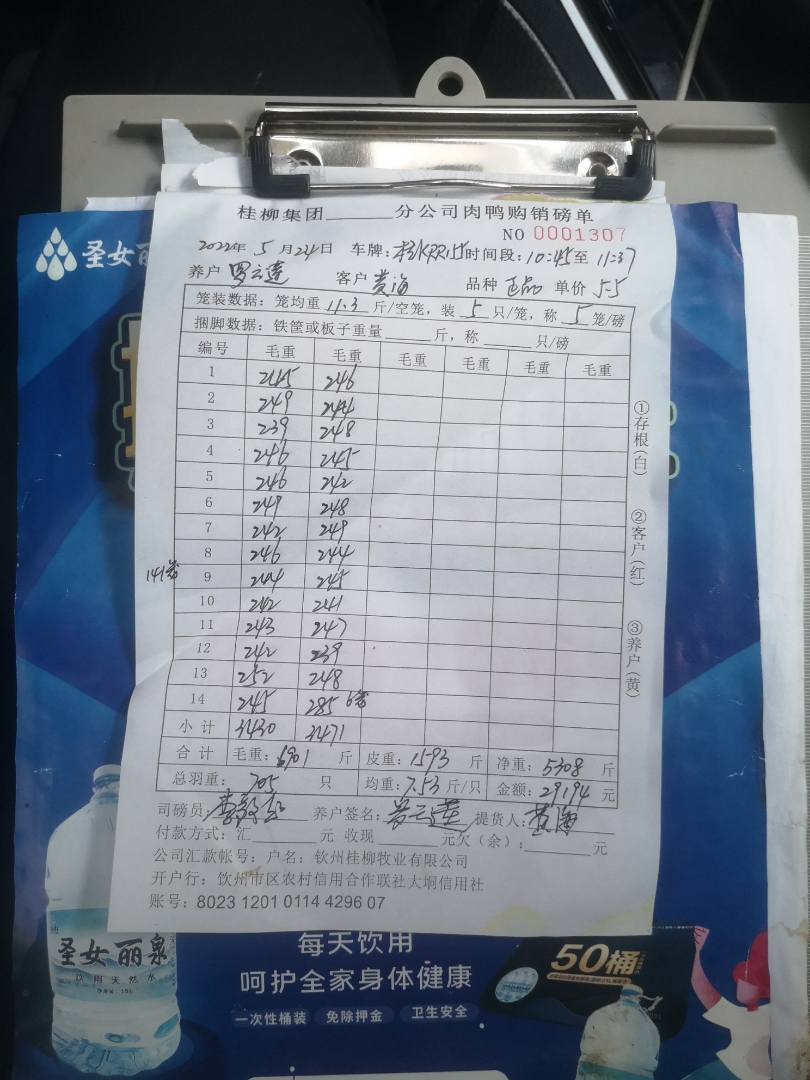 桂柳集团______分公司肉鸭购销磅单
NO 0001307
2022年 5 月 24 日 车牌: 时间段: 10:45 至 11:37
养户 罗云莲 客户 黄海 品种 正品 单价 5.5
笼装数据: 笼均重 11.3 斤/空笼, 装 5 只/笼, 称 5 笼/磅
捆脚数据: 铁筐或板子重量______斤, 称______只/磅
编号 毛重 毛重 毛重 毛重 毛重 毛重
1 245 246
2 249 244
3 239 248
4 246 245
5 246 242
6 249 248
7 242 249
8 246 244
141笼
9 244 245
10 242 241
11 243 247
12 242 239
13 252 248
14 245 285 6笼
小计 3430 3471
合计 毛重: 6901 斤 皮重: 1593 斤 净重: 5308 斤
总羽重: 705 只 均重: 7.53 斤/只 金额: 29194 元
司磅员: 养户签名: 罗云莲 提货人: 黄海
付款方式: 汇______元 收现______元欠(余):______元
公司汇款帐号: 户名: 钦州桂柳牧业有限公司
开户行: 钦州市区农村信用合作联社大垌信用社
账号: 8023 1201 0114 4296 07
①存根(白)
②客户(红)
③养户(黄)
圣女丽
圣女丽泉
饮用天然水
每天饮用
呵护全家身体健康
一次性桶装 免除押金 卫生安全
50桶